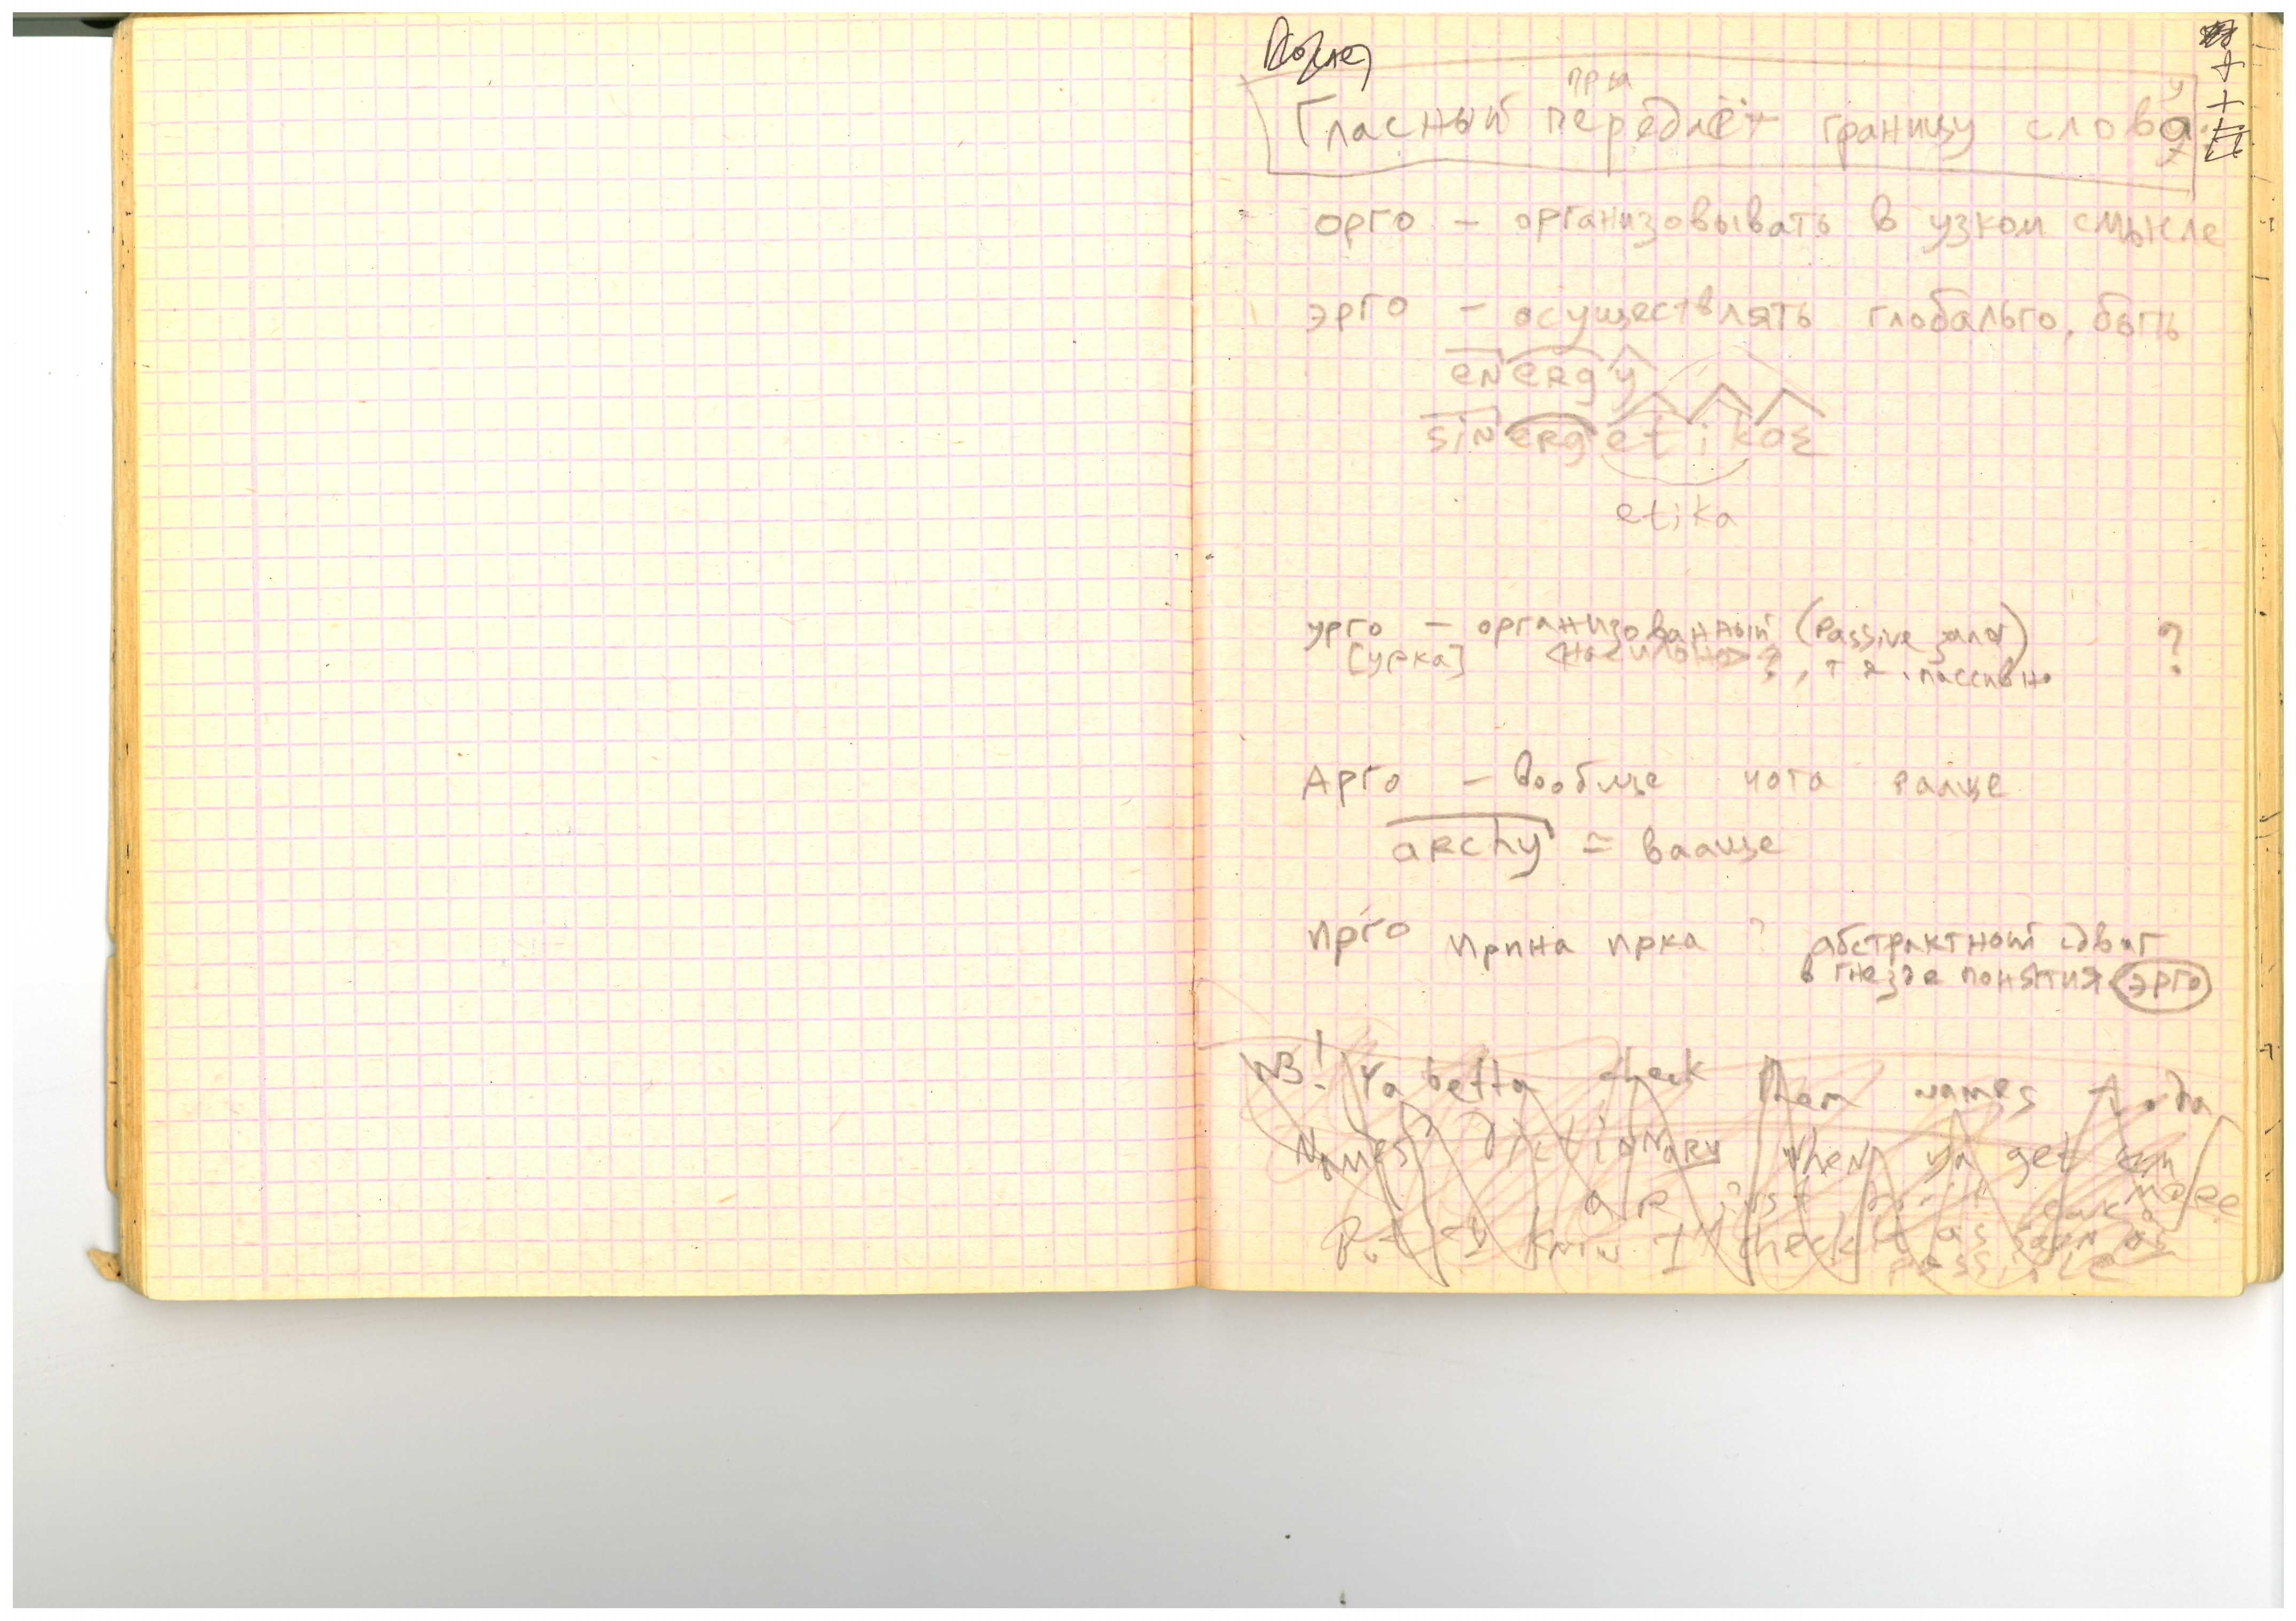 Гласный передаёт границу слова
орго – организовывать в узком смысле
эрго – осуществлять глобальго, быть
energy
sinergetikos
etika
урго – организованный (Passive залог) ?
[урка] <насильно>?, т я. пассивно
Арго – вообще чота ваще
archy = вааще
прго прпна прка ? абстрактный сдвиг
в гнезде понятия эрго
NB! Ya betta check them names to da
Names' dictionary when ya get em
more
But I know I check it as soon as
possible